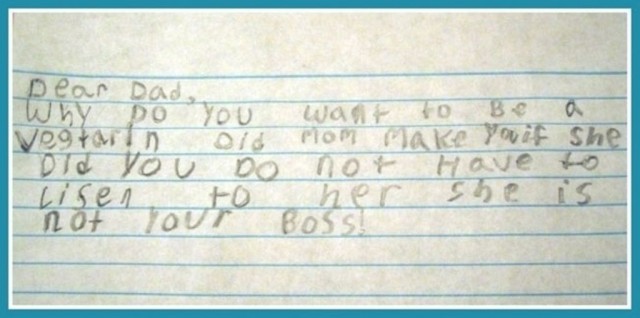 Dear Dad,
Why Do You want to Be a
Vegtarin Did mom Make Yaif She
Did You Do not Have to
Lisen to her she is
not Your Boss!